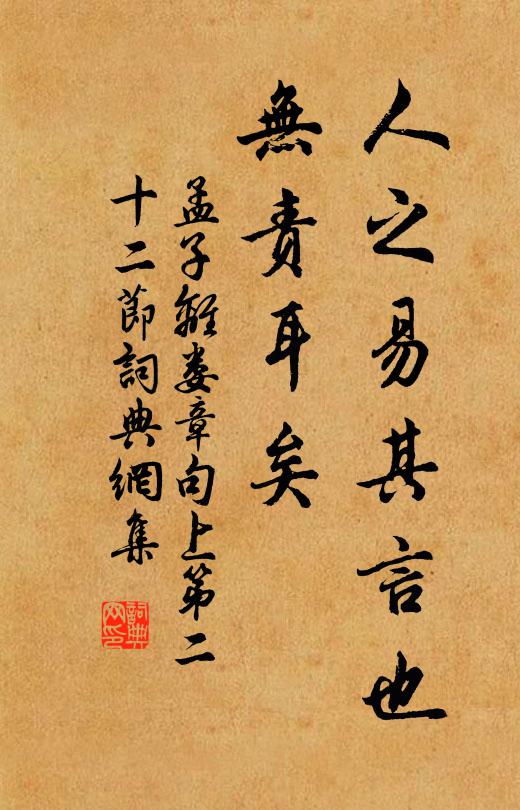 人之易其言也
無責耳矣
孟子離娄章句上第二
十二節詞典網集
詞典
网印